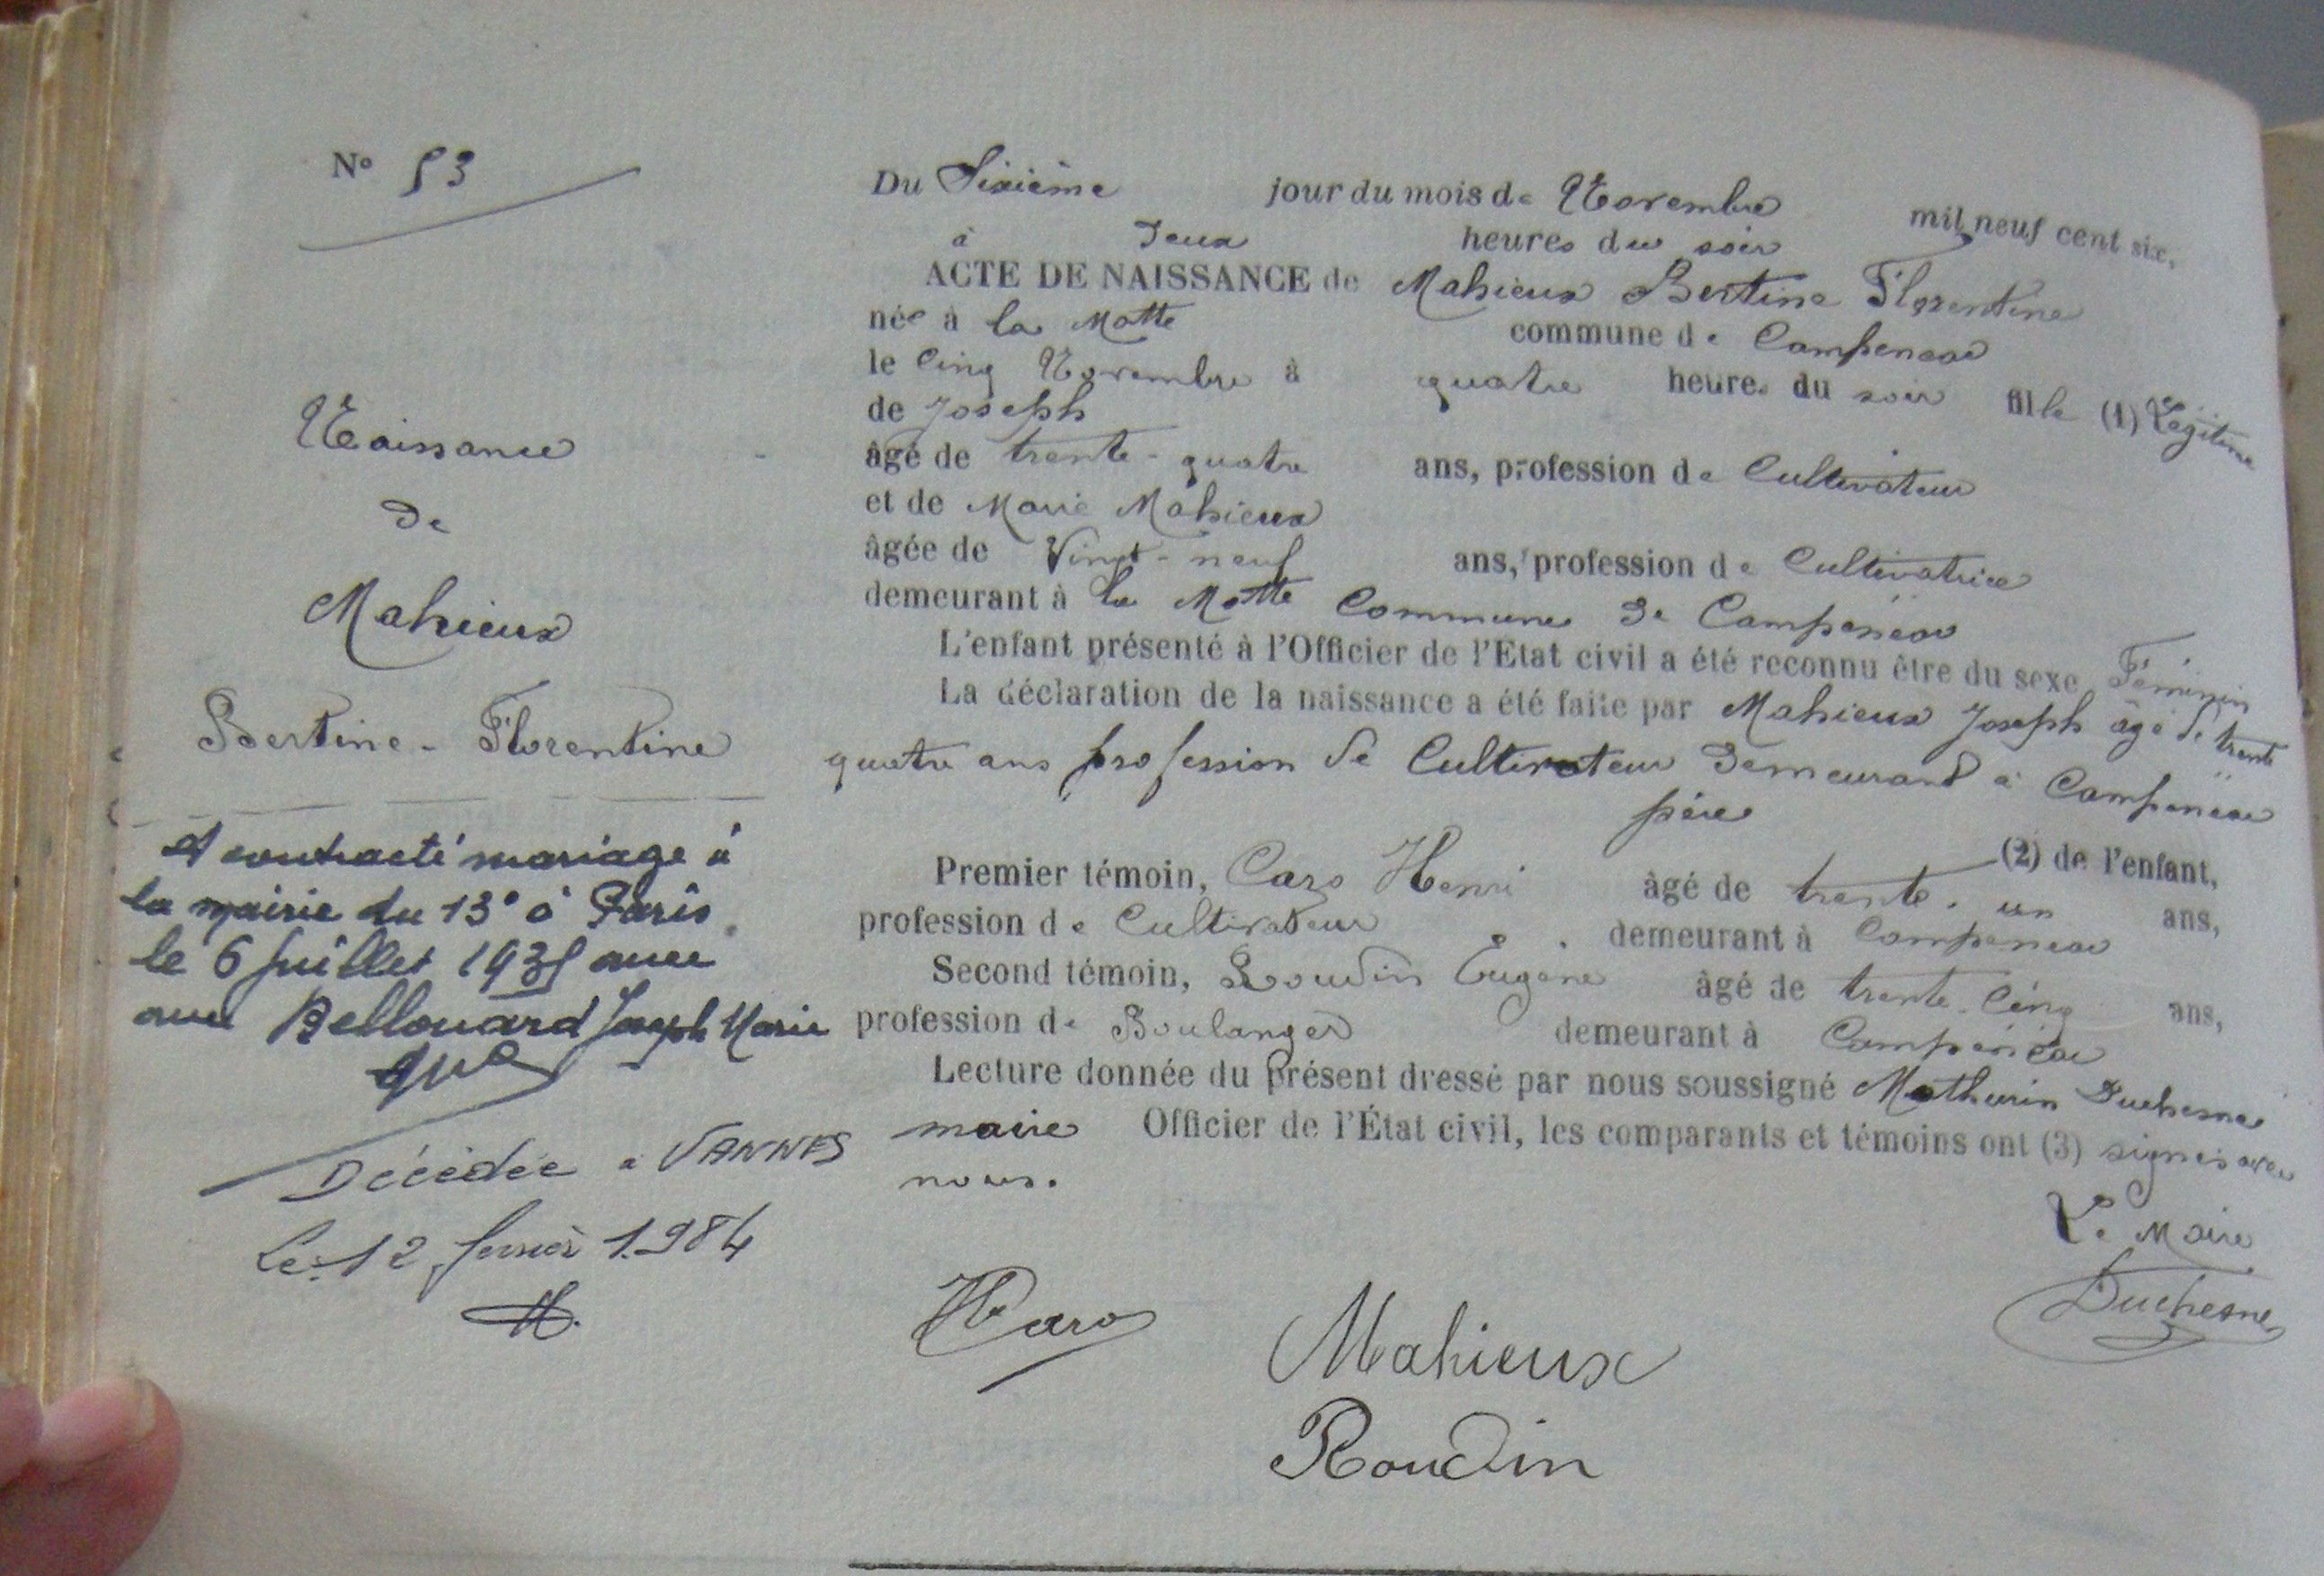 N° 53
Naissance
de
Mahieux
Bertine - Florentine
A contracté mariage à
la mairie du 13° à Paris
le 6 Juillet 1935 avec
avec Bellouard Joseph Marie
Décédée à VANNES
le: 12 février 1.984
Du Sixième jour du mois de Novembre mil neuf cent six,
à Deux heures du soir
ACTE DE NAISSANCE de Mahieux Bertine Florentine
née à la Motte commune de Campeneac
le Cinq Novembre à quatre heures du soir fille (1) Légitime
de Joseph
âgé de trente-quatre ans, profession de Cultivateur
et de Marie Mahieux
âgée de Vingt-neuf ans, profession de Cultivatrice
demeurant à la Motte Commune de Campénéac
L'enfant présenté à l'Officier de l'Etat civil a été reconnu être du sexe Féminin
La déclaration de la naissance a été faite par Mahieux Joseph âgé de trente
quatre ans profession de Cultivateur Demeurant à Campeneac
père (2) de l'enfant,
Premier témoin, Caro Henri âgé de trente-un ans,
profession de Cultivateur demeurant à Campeneac
Second témoin, Roudin Eugène âgé de trente-Cinq ans,
profession de Boulanger demeurant à Campénéac
Lecture donnée du présent dressé par nous soussigné Mathurin Duchesne
maire Officier de l'État civil, les comparants et témoins ont (3) signés avec
nous.
Le Maire
Duchesne
HCaro
Mahieux
Roudin